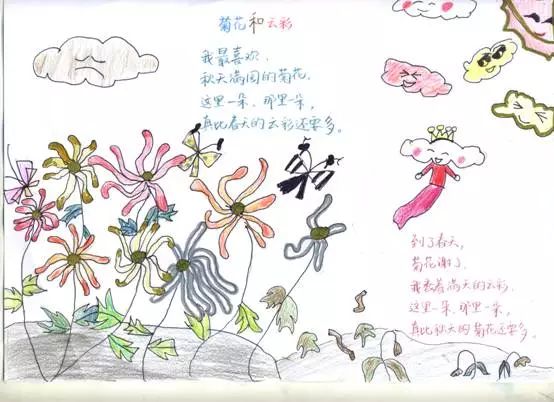 菊花和云彩
我最喜欢，
秋天满园的菊花，
这里一朵、那里一朵，
真比春天的云彩还要多。
到了春天，
菊花谢了，
我看着满天的云彩，
这里一朵、那里一朵，
真比秋天的菊花还要多。